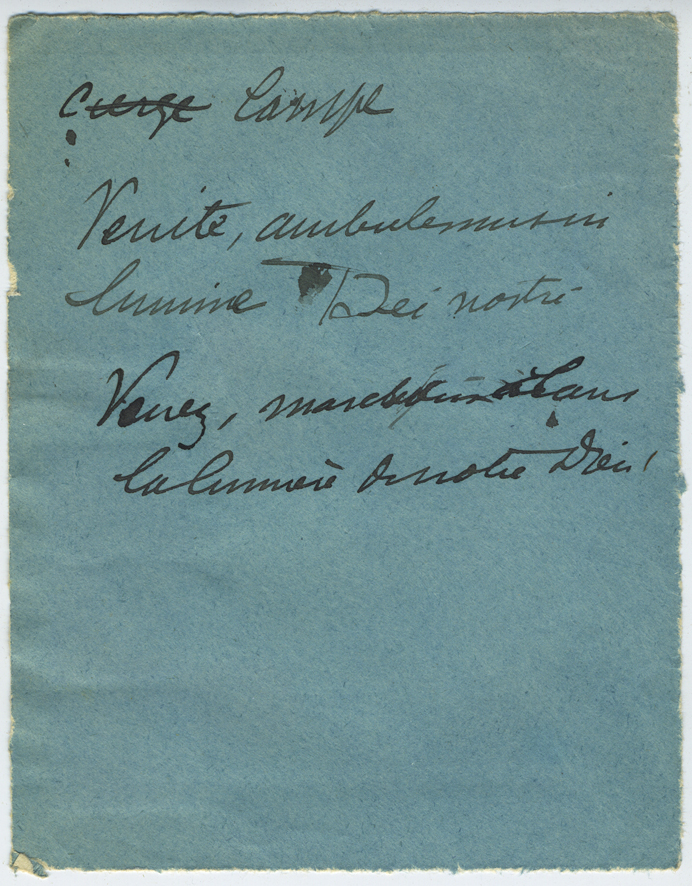 cierge Lampe
Venite, ambulemus in
lumine Dei nostri
Venez, marchons dans
la lumière de notre Dieu!